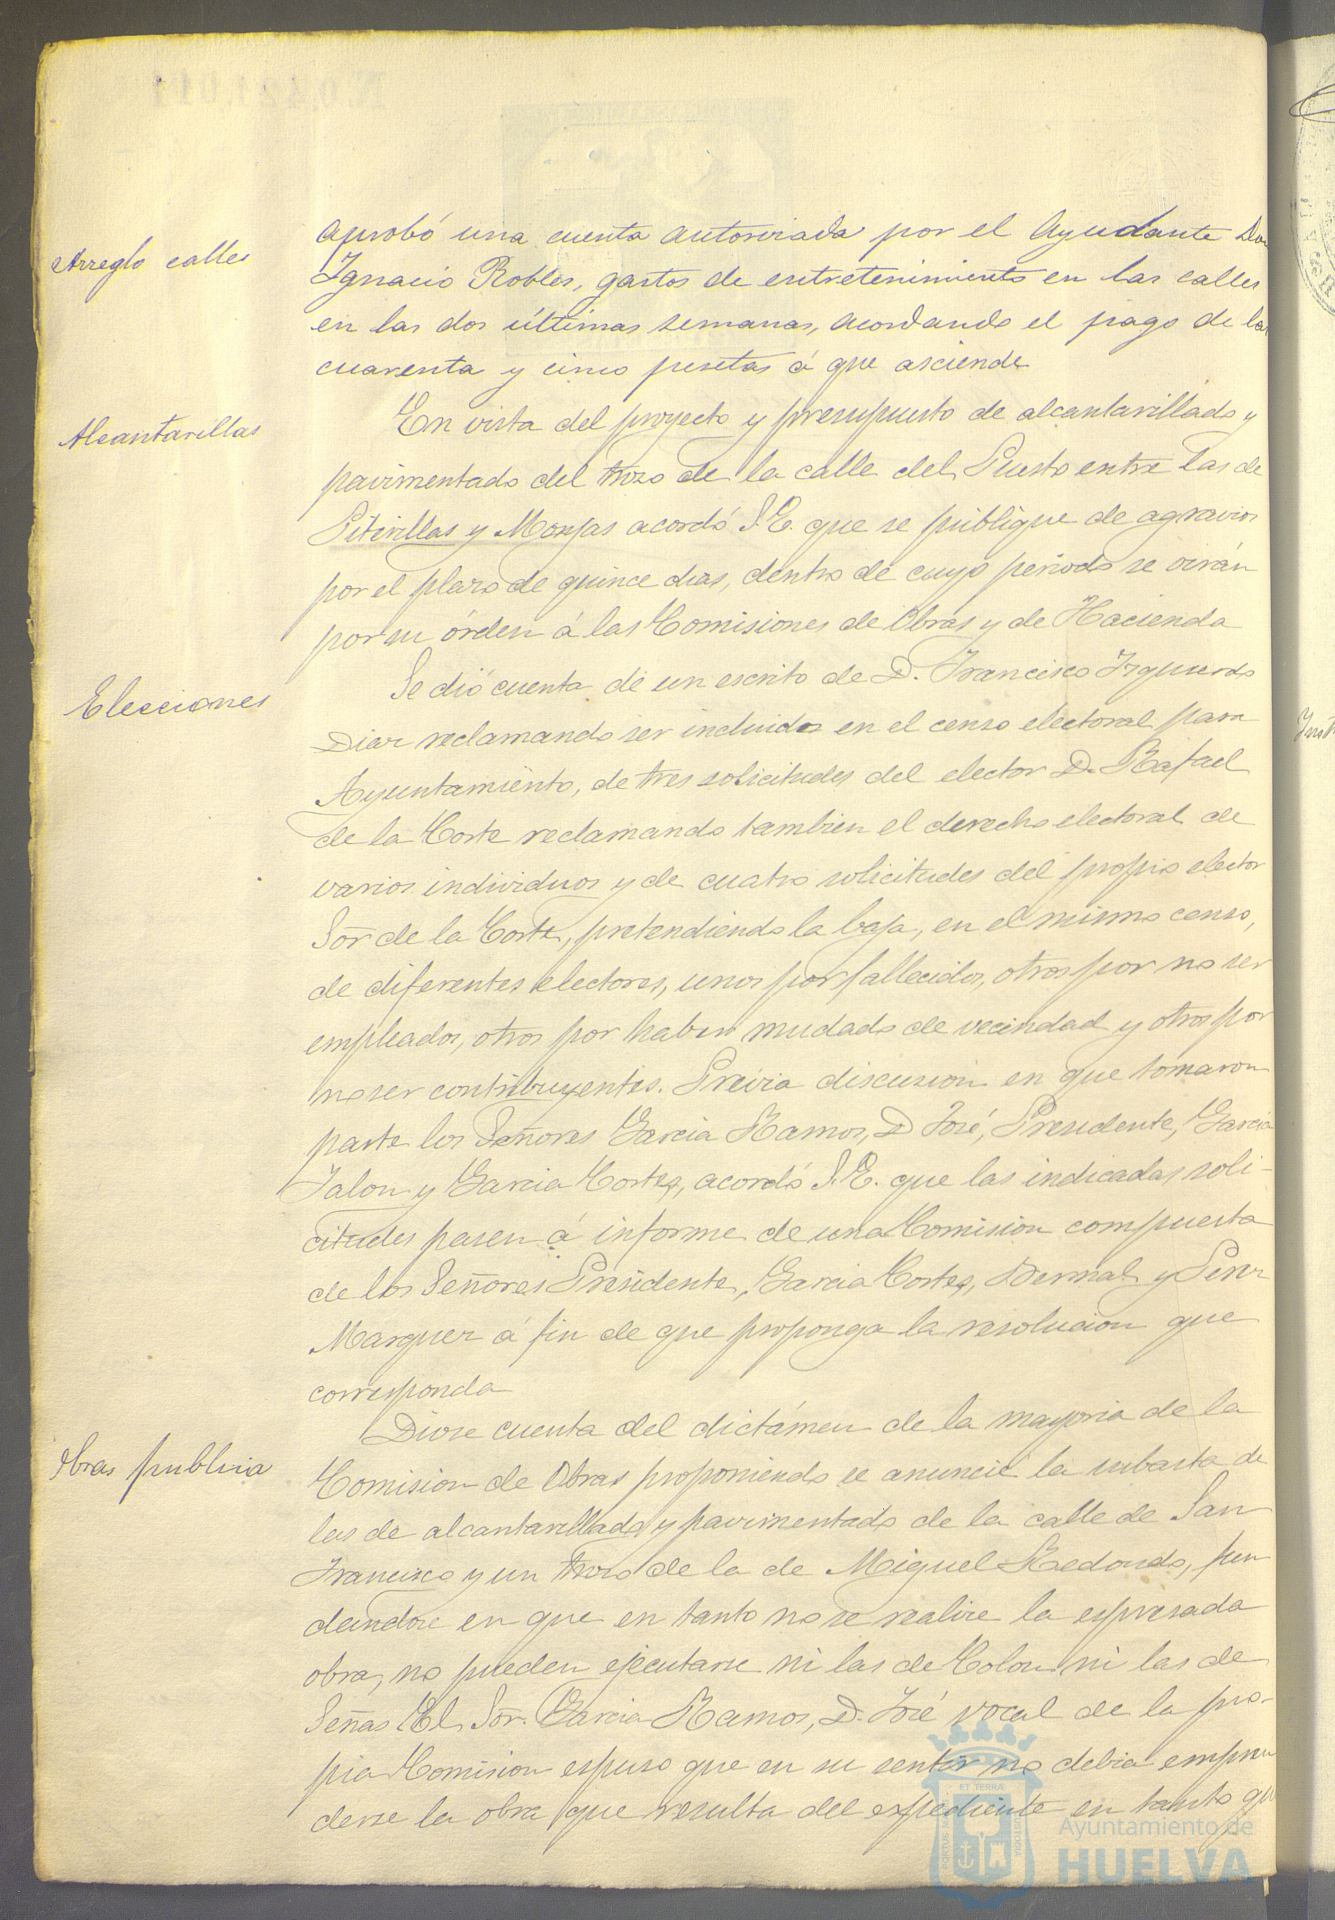 Arreglo calles
aprobó una cuenta autorizada por el Ayudante Don
Ignacio Robles, gastos de entretenimiento en las calles
en las dos últimas semanas, acordando el pago de las
cuarenta y cinco pesetas á que asciende
Alcantarillas
En vista del proyecto y presupuesto de alcantarillado y
pavimentado del trozo de la calle del Puerto entre las de
y Monjas acordó S.E. que se publique de agravios
por el plazo de quince dias, dentro de cuyo periodo se oirán
por su órden á las Comisiones de Obras y de Hacienda
Elecciones
Se dió cuenta de un escrito de D. Francisco Izquierdo
Diaz reclamando ser incluido en el censo electoral para
Ayuntamiento, de tres solicitudes del elector D. Rafael
de la Corte reclamando tambien el derecho electoral de
varios individuos y de cuatro solicitudes del propio elector
Sor de la Corte, pretendiendo la baja, en el mismo censo,
de diferentes electores, unos por fallecidos, otros por no ser
empleados, otros por haber mudado de vecindad y otros por
no ser contribuyentes. Previa discusion en que tomaron
parte los Señores Garcia Ramos, D José, Presidente, Garcia
Jalon y Garcia Cortes, acordó S.E. que las indicadas soli-
citudes pasen á informe de una Comision compuesta
de los Señores Presidente, Garcia Cortes, Bernal y Perez
Marquez á fin de que proponga la resolucion que
corresponda
Obras publica
Diose cuenta del dictámen de la mayoria de la
Comision de Obras proponiendo se anuncie la subasta de
las de alcantarillado y pavimentado de la calle de San
Francisco y un trozo de la de Miguel Redondo, fun
dandose en que en tanto no se realize la espresada
obra, no pueden ejecutarse ni las de Colon ni las de
Señas El Sor. Garcia Ramos, D. José vocal de la pro-
pia Comision espuso que en su sentir no debia empren
derse la obra que resulta del expediente en tanto que
Ayuntamiento de
HUELVA